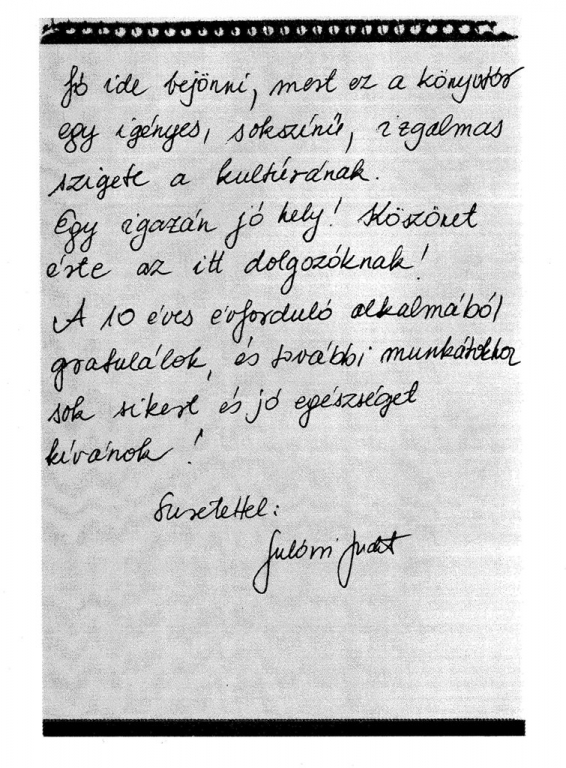 Jó ide bejönni, mert ez a könyvtár
egy igényes, sokszínű, izgalmas
szigete a kultúrának.
Egy igazán jó hely! Köszönet
érte az itt dolgozóknak!
A 10 éves évforduló alkalmából
gratulálok, és további munkátokhoz
sok sikert és jó egészséget
kívánok!
Szeretettel:
Judit